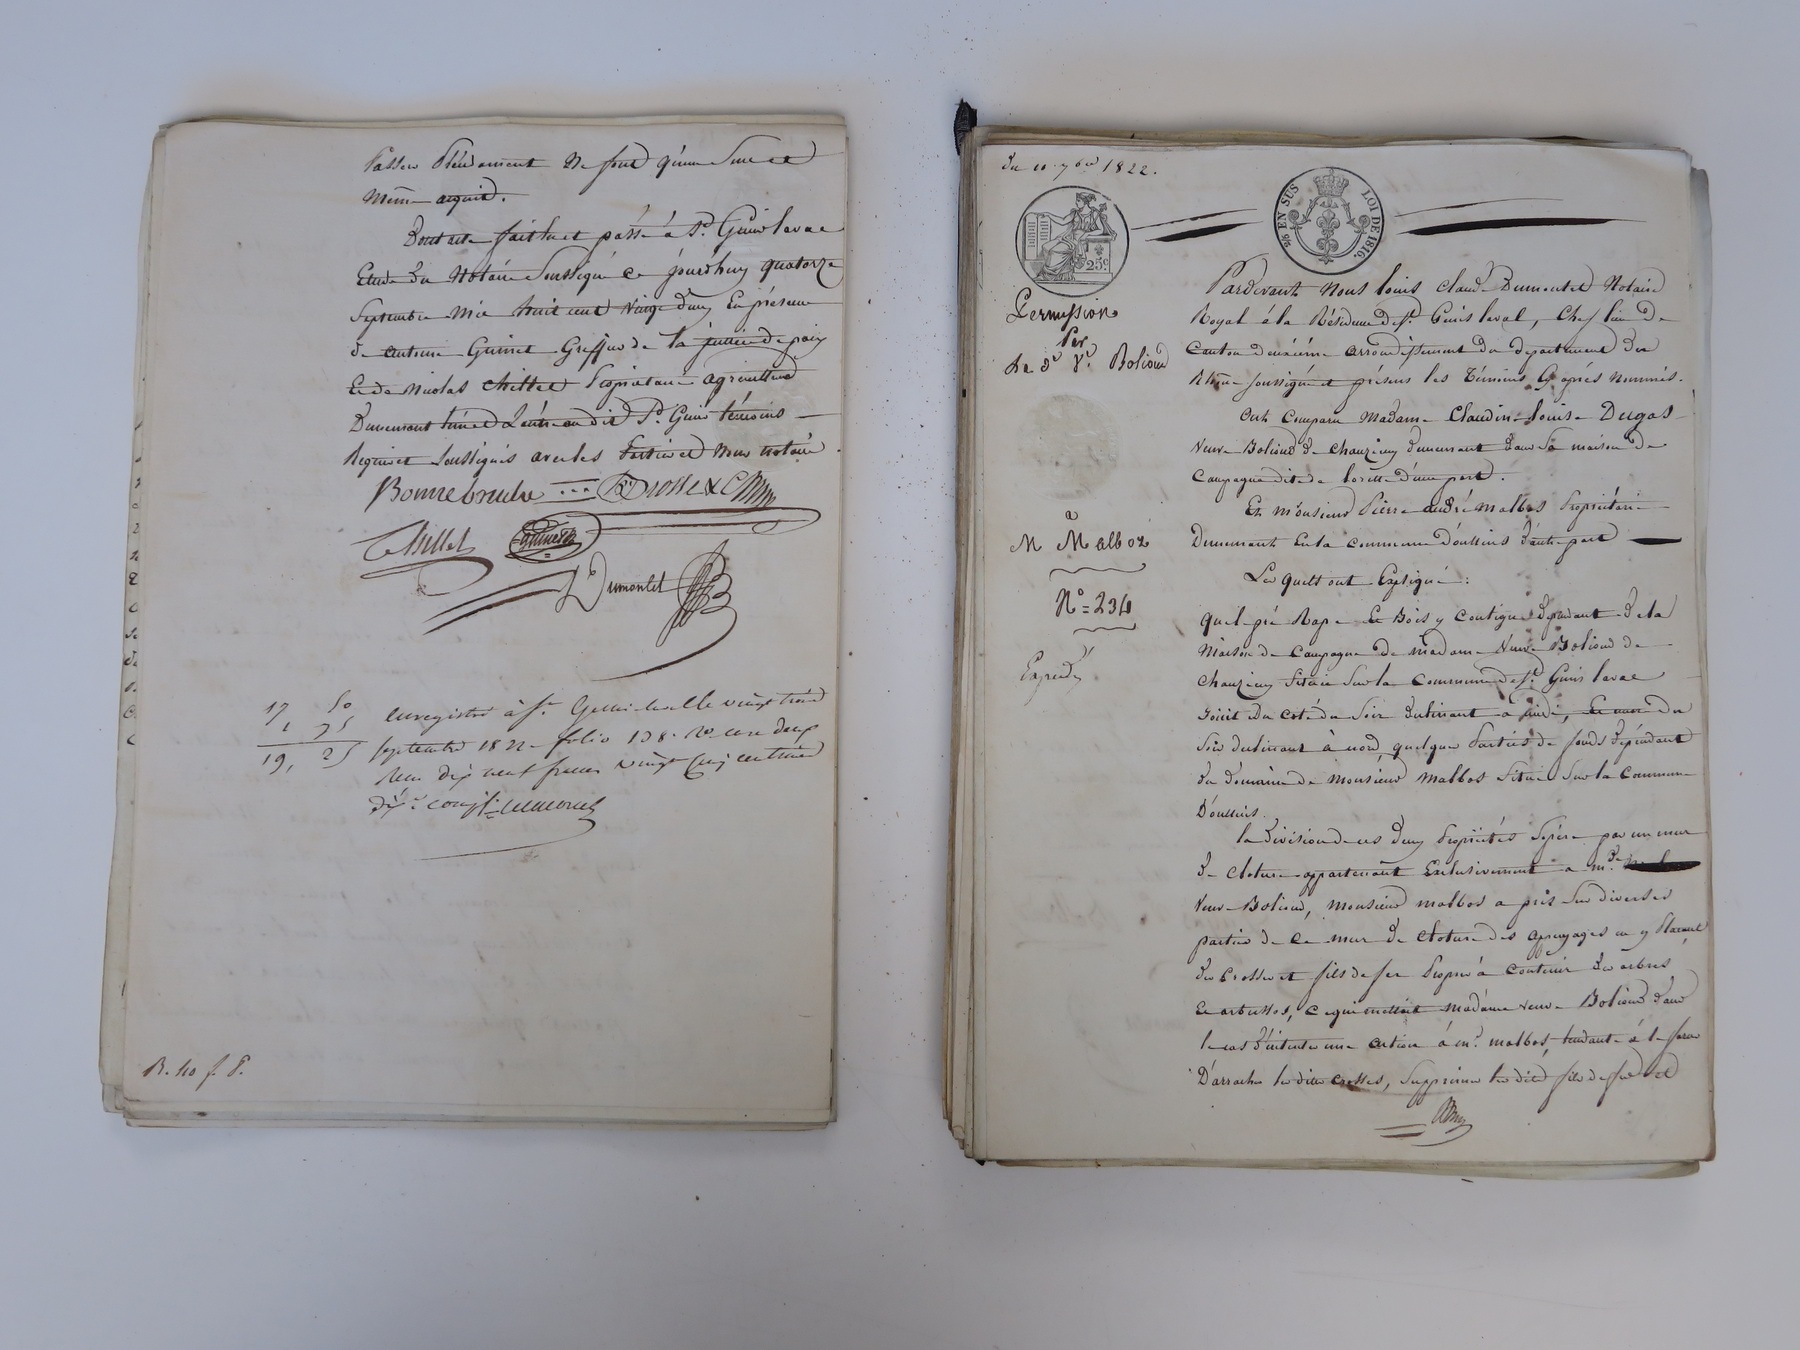 Passer Séparément ne font qu'une seule et
même acquit.
Dont acte fait lu et passé à St. Genis laval
Etude du Notaire Soussigné ce jourd'huy quatorze
Septembre Mil huit cent vingt deux En présence
de antoine Guimet Greffier de la justice de paix
Et de Nicolas Chillet Propriétaire agriculteur
Demeurant tous deux audit St. Genis témoins
Requis et soussignés avec les parties et nous notaire
Bonnebouche
Chillet
Guimet
Ls Dumontet
17, 50
1, 75
19, 25
Enregistré à St. Genis le vingt trois
septembre 1822 folio 138 Ro case deux
Reçu dix neuf francs vingt cinq centimes
dixe. compris
R. 40 f. 8.
Du 11 7bre 1822.
25 c
2/5 EN SUS
LOI DE 1816.
Permission
Par
La De Ve. Bolioud
à
M Malboz
No = 234
Expédié
Pardevant Nous Louis Claude Dumontet Notaire
Royal à la Résidence de St. Genis laval, Chef lieu de
Canton deuxième arrondissement du département du
Rhône soussigné et présens les Témoins Cy après nommés.
Ont Comparu Madame Claudine Louise Dugas
Veuve Bolioud de Chanzieux demeurant dans sa maison de
Campagne dite de lorette d'une part.
Et Monsieur Pierre andré malbos Propriétaire
Demeurant En la commune d'oullins d'autre part
Les quels ont Expliqué :
que le pré Rape et Bois y contigus dépendant de la
Maison de Campagne de madame Veuve Bolioud de
Chanzieux Située Sur la Commune de St. Genis laval
du coté du Soir du au nord
Soir au nord, quelques Parties de fonds dépendant
du domaine de Monsieur Malbos Situé Sur la Commune
D'oullins.
la Division de ces deux Propriétés Sépare par un mur
de cloture appartenant Exclusivement a mde.
Veuve Bolioud, Monsieur malbos a pris Sur diverses
parties de ce mur de cloture des appuyages en y Placant
des Crosses et fils de fer Propres à contenir des arbres
Et arbustes, ce qui mettait Madame veuve Bolioud dans
le cas d'intenter une action à mr. malbos, tendante à le faire
D'arracher les dites crosses, Supprimer les dits fils de fer et